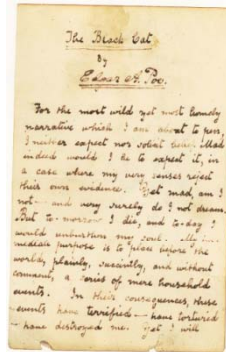 The Black Cat
By
Edgar A. Poe.
For the most wild yet most homely
narrative which I am about to pen,
I neither expect nor solicit belief. Mad
indeed would I be to expect it, in
a case where my very senses reject
their own evidence. Yet mad, am I
not — and very surely do I not dream.
But to-morrow I die, and to-day I
would unburthen my soul. My
purpose is to place before the
world, plainly, succinctly, and without
comment, a series of mere household
events. In their consequences, these
events have terrified — have tortured
— have destroyed me. Yet I will